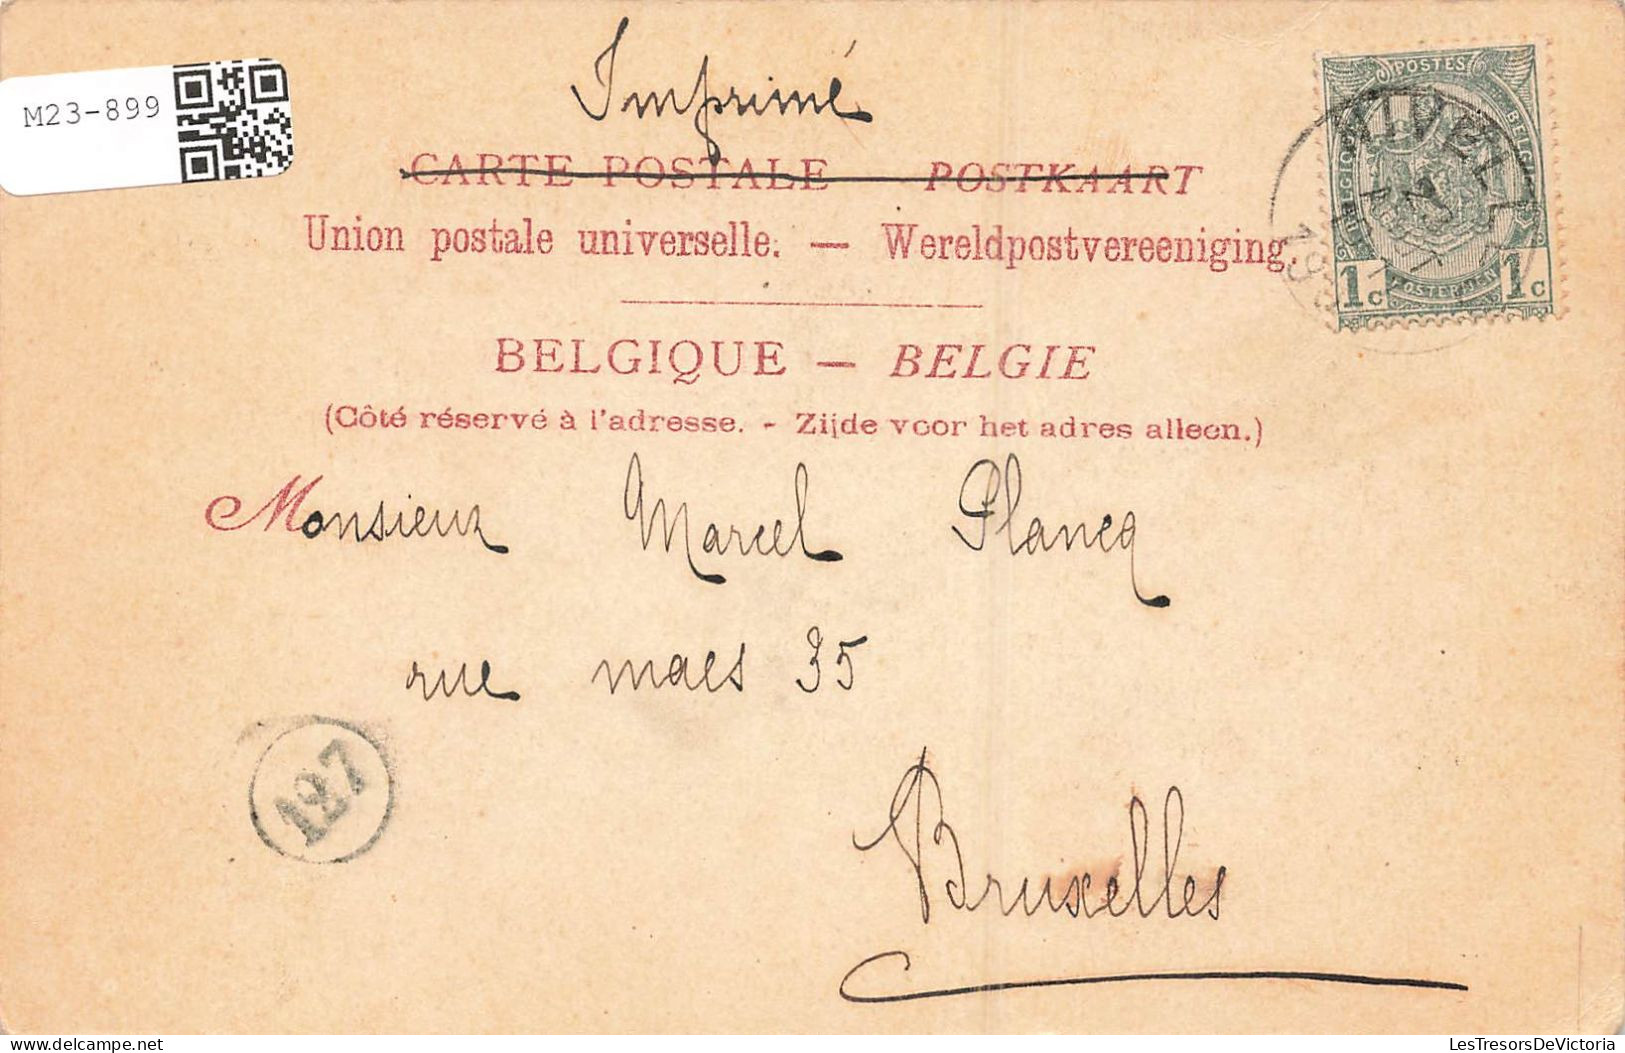 Imprimé
M23-899
CARTE POSTALE POSTKAART
Union postale universelle. — Wereldpostvereeniging.
BELGIQUE — BELGIE
(Côté réservé à l'adresse. - Zijde voor het adres alleen.)
Monsieur Marcel Plancq
rue maes 35
Bruxelles
127
POSTES
BELGIQUE
BELGIE
POSTERIJEN
1c 1c
NIVELL
LesTresorsDeVictoria